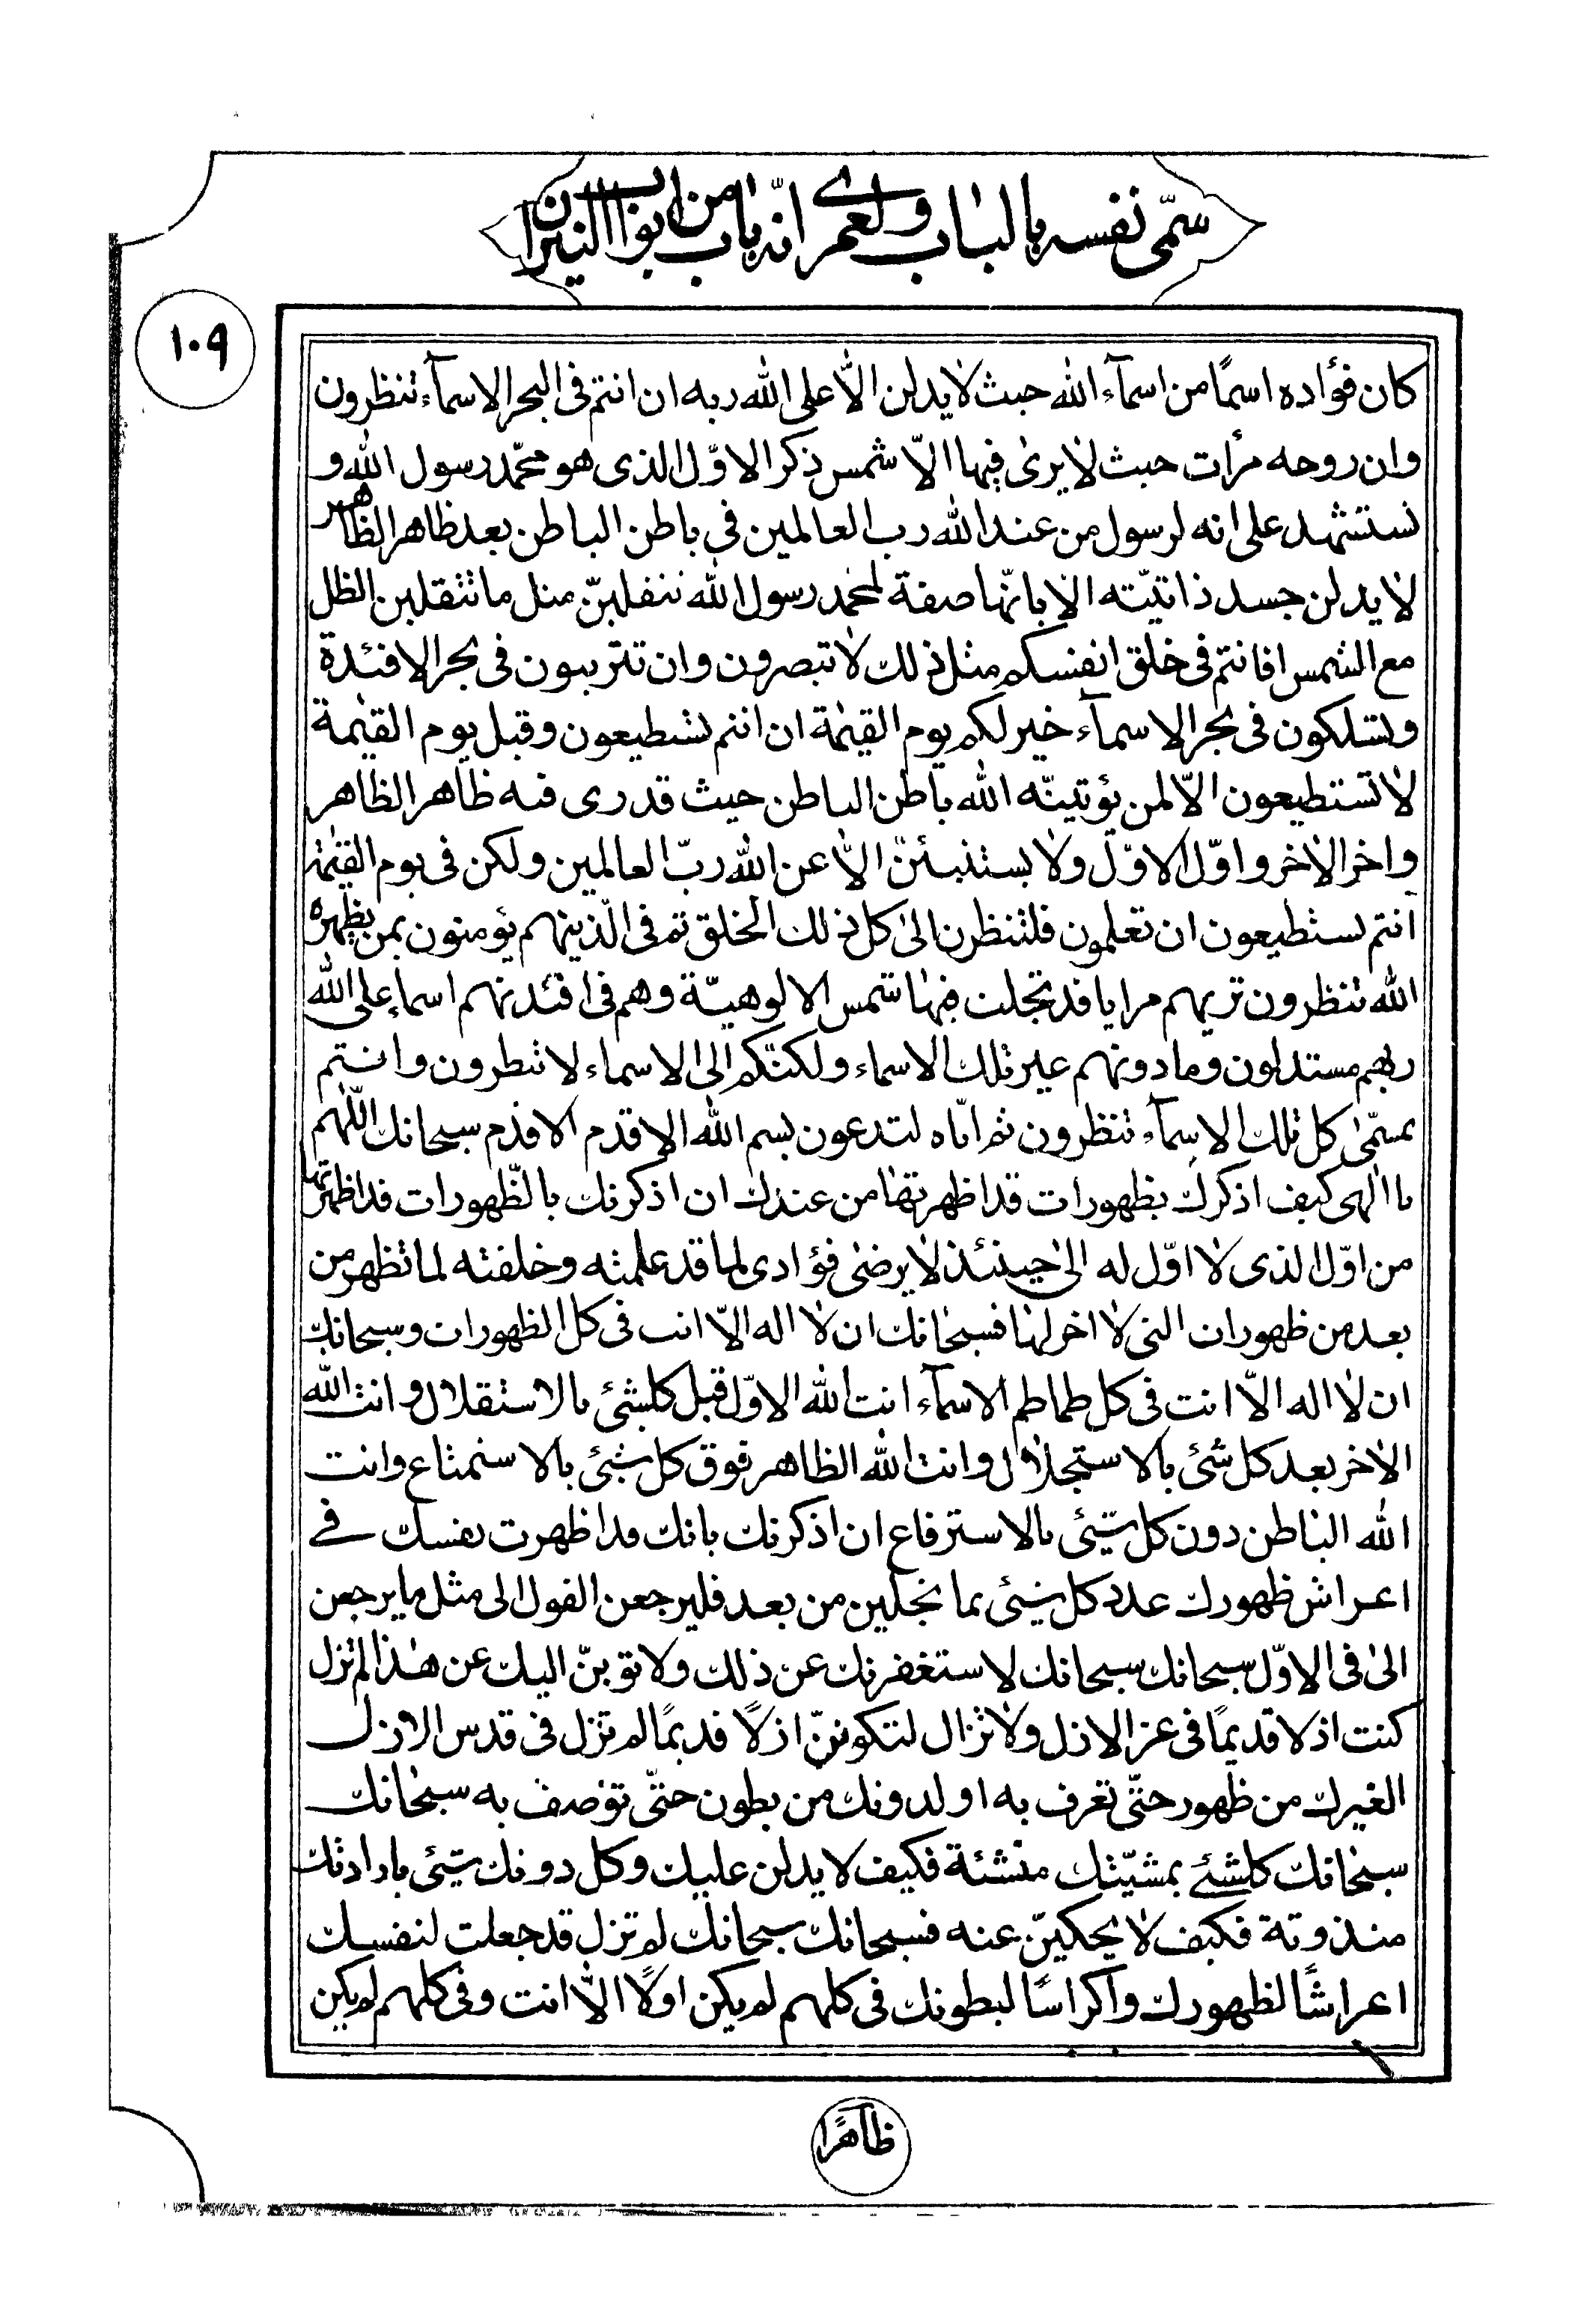 سمّى نفسه بالباب ولعمرى انّه باب من ابواب النيران
١٠٩
كان فؤاده اسمًا من اسمآء الله حيث لايدلن الّا على الله ربه ان انتم فى البحر الاسمآء تنظرون
وان روحه مرأت حيث لايرىٰ فيها الّا شمس ذكر الاوّل الذى هو محمّد رسول الله و
نستشهد على انه لرسول من عند الله رب العالمين فى باطن الباطن بعد ظاهر الظاهر
لايدلن جسد ذاتيّته الا بانّها صفة لمحمد رسول الله تنقلبنّ مثل ما تتقلبن الظل
مع الشمس افانتم فى خلق انفسكم مثل ذلك لا تبصرون وان تتربيون فى بحر الافئدة
وتسلكون فى بحر الاسمآء خير لكم يوم القيٰمة ان انتم تستطيعون وقبل يوم القيٰمة
لا تستطيعون الّا لمن يؤتينّه الله باطن الباطن حيث قد رى فيه ظاهر الظاهر
واخر الاخر واوّل الاوّل ولا يستنبئنّ الّا عن الله ربّ العالمين ولكن فى يوم القيٰمة
انتم تستطيعون ان تعلمون فلتنظرن الىٰ كل ذلك الخلق ثم فى الّذينهم يؤمنون بمن يظهره
الله تنظرون تريهم مرايا قد تجلت فيها شمس الالوهيّة وهم فى افئدتهم اسماء على الله
ربهم مستدلون وما دونهم غير تلك الاسماء ولكنّكم الى الاسماء لا تنظرون وانتم
بمسمّىٰ كل تلك الاسمآء تنظرون ثم ايّاه لتدعون بسم الله الاقدم الاقدم سبحانك اللّهم
يا الٰهى كيف اذكرك بظهورات قد اظهرتها من عندك ان اذكرنك بالظّهورات قد اظهرتها
من اوّل الذى لا اوّل له الىٰ حينئذ لا يرضىٰ فؤادى لما قد علمته وخلقته لما تظهر من
بعد من ظهورات التى لا اخر لها فسبحٰانك ان لا اله الّا انت فى كل الظهورات وسبحانك
ان لا اله الّا انت فى كل طماطم الاسمآء انت الله الاوّل قبل كلشئ بالاستقلال وانت الله
الاخر بعد كل شئ بالاستجلال وانت الله الظاهر فوق كل شئ بالاستمناع وانت
الله الباطن دون كل شئ بالاسترفاع ان اذكرنك بانك قد اظهرت نفسك فى
اعراش ظهورك عدد كل شئ بما تجلين من بعد فليرجعن القول الى مثل ما يرجعن
الىٰ فى الاوّل سبحانك سبحانك لاستغفرنك عن ذلك ولاتوبنّ اليك عن هذا لم تزل
كنت اذلا قديمًا فى عز الازل ولا تزال لتكوننّ اذلًا قديمًا لم تزل فى قدس الازل
الغيرك من ظهور حتّى تعرف به او لدونك من بطون حتّى توصف به سبحٰانك
سبحٰانك كلشئ بمشيّتك منشئة فكيف لا يدلن عليك وكل دونك شئ بارادتك
منذوتة فكيف لا يحكينّ عنه فسبحانك سبحانك لم تزل قد جعلت لنفسك
اعراشًا لظهورك واكراسًا لبطونك فى كلهم لم يكن اولًا الّا انت وفى كلهم لم يكن
ظاهرًا